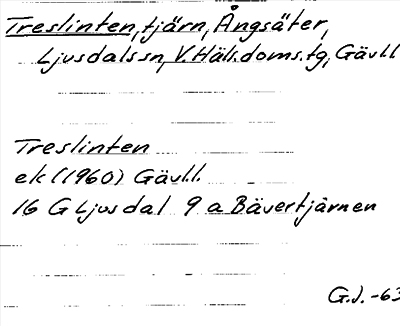 Treslinten, tjärn, Ängsäter,
Ljusdals sn, V. Häls. doms. tg, Gävll
Treslinten
ek (1960) Gävl.l.
16 G Ljusdal 9 a Bävertjärnen
G.J. -63